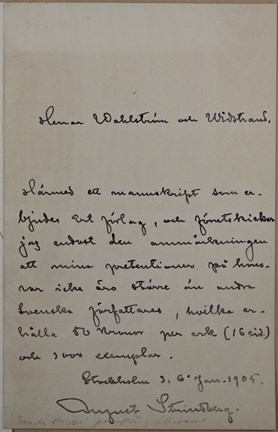 Herrar Wahlström och Widstrand.
Härmed ett manuskript som er-
bjudes Ert förlag, och förutskickar
jag endast den anmärkningen
att mina pretentioner på hono-
rar icke äro större än andra
Svenska författares, hvilka er-
hålla 50 kronor per ark (16 sid)
och 1000 exemplar.
Stockholm d. 6 Jan. 1905.
August Strindberg.